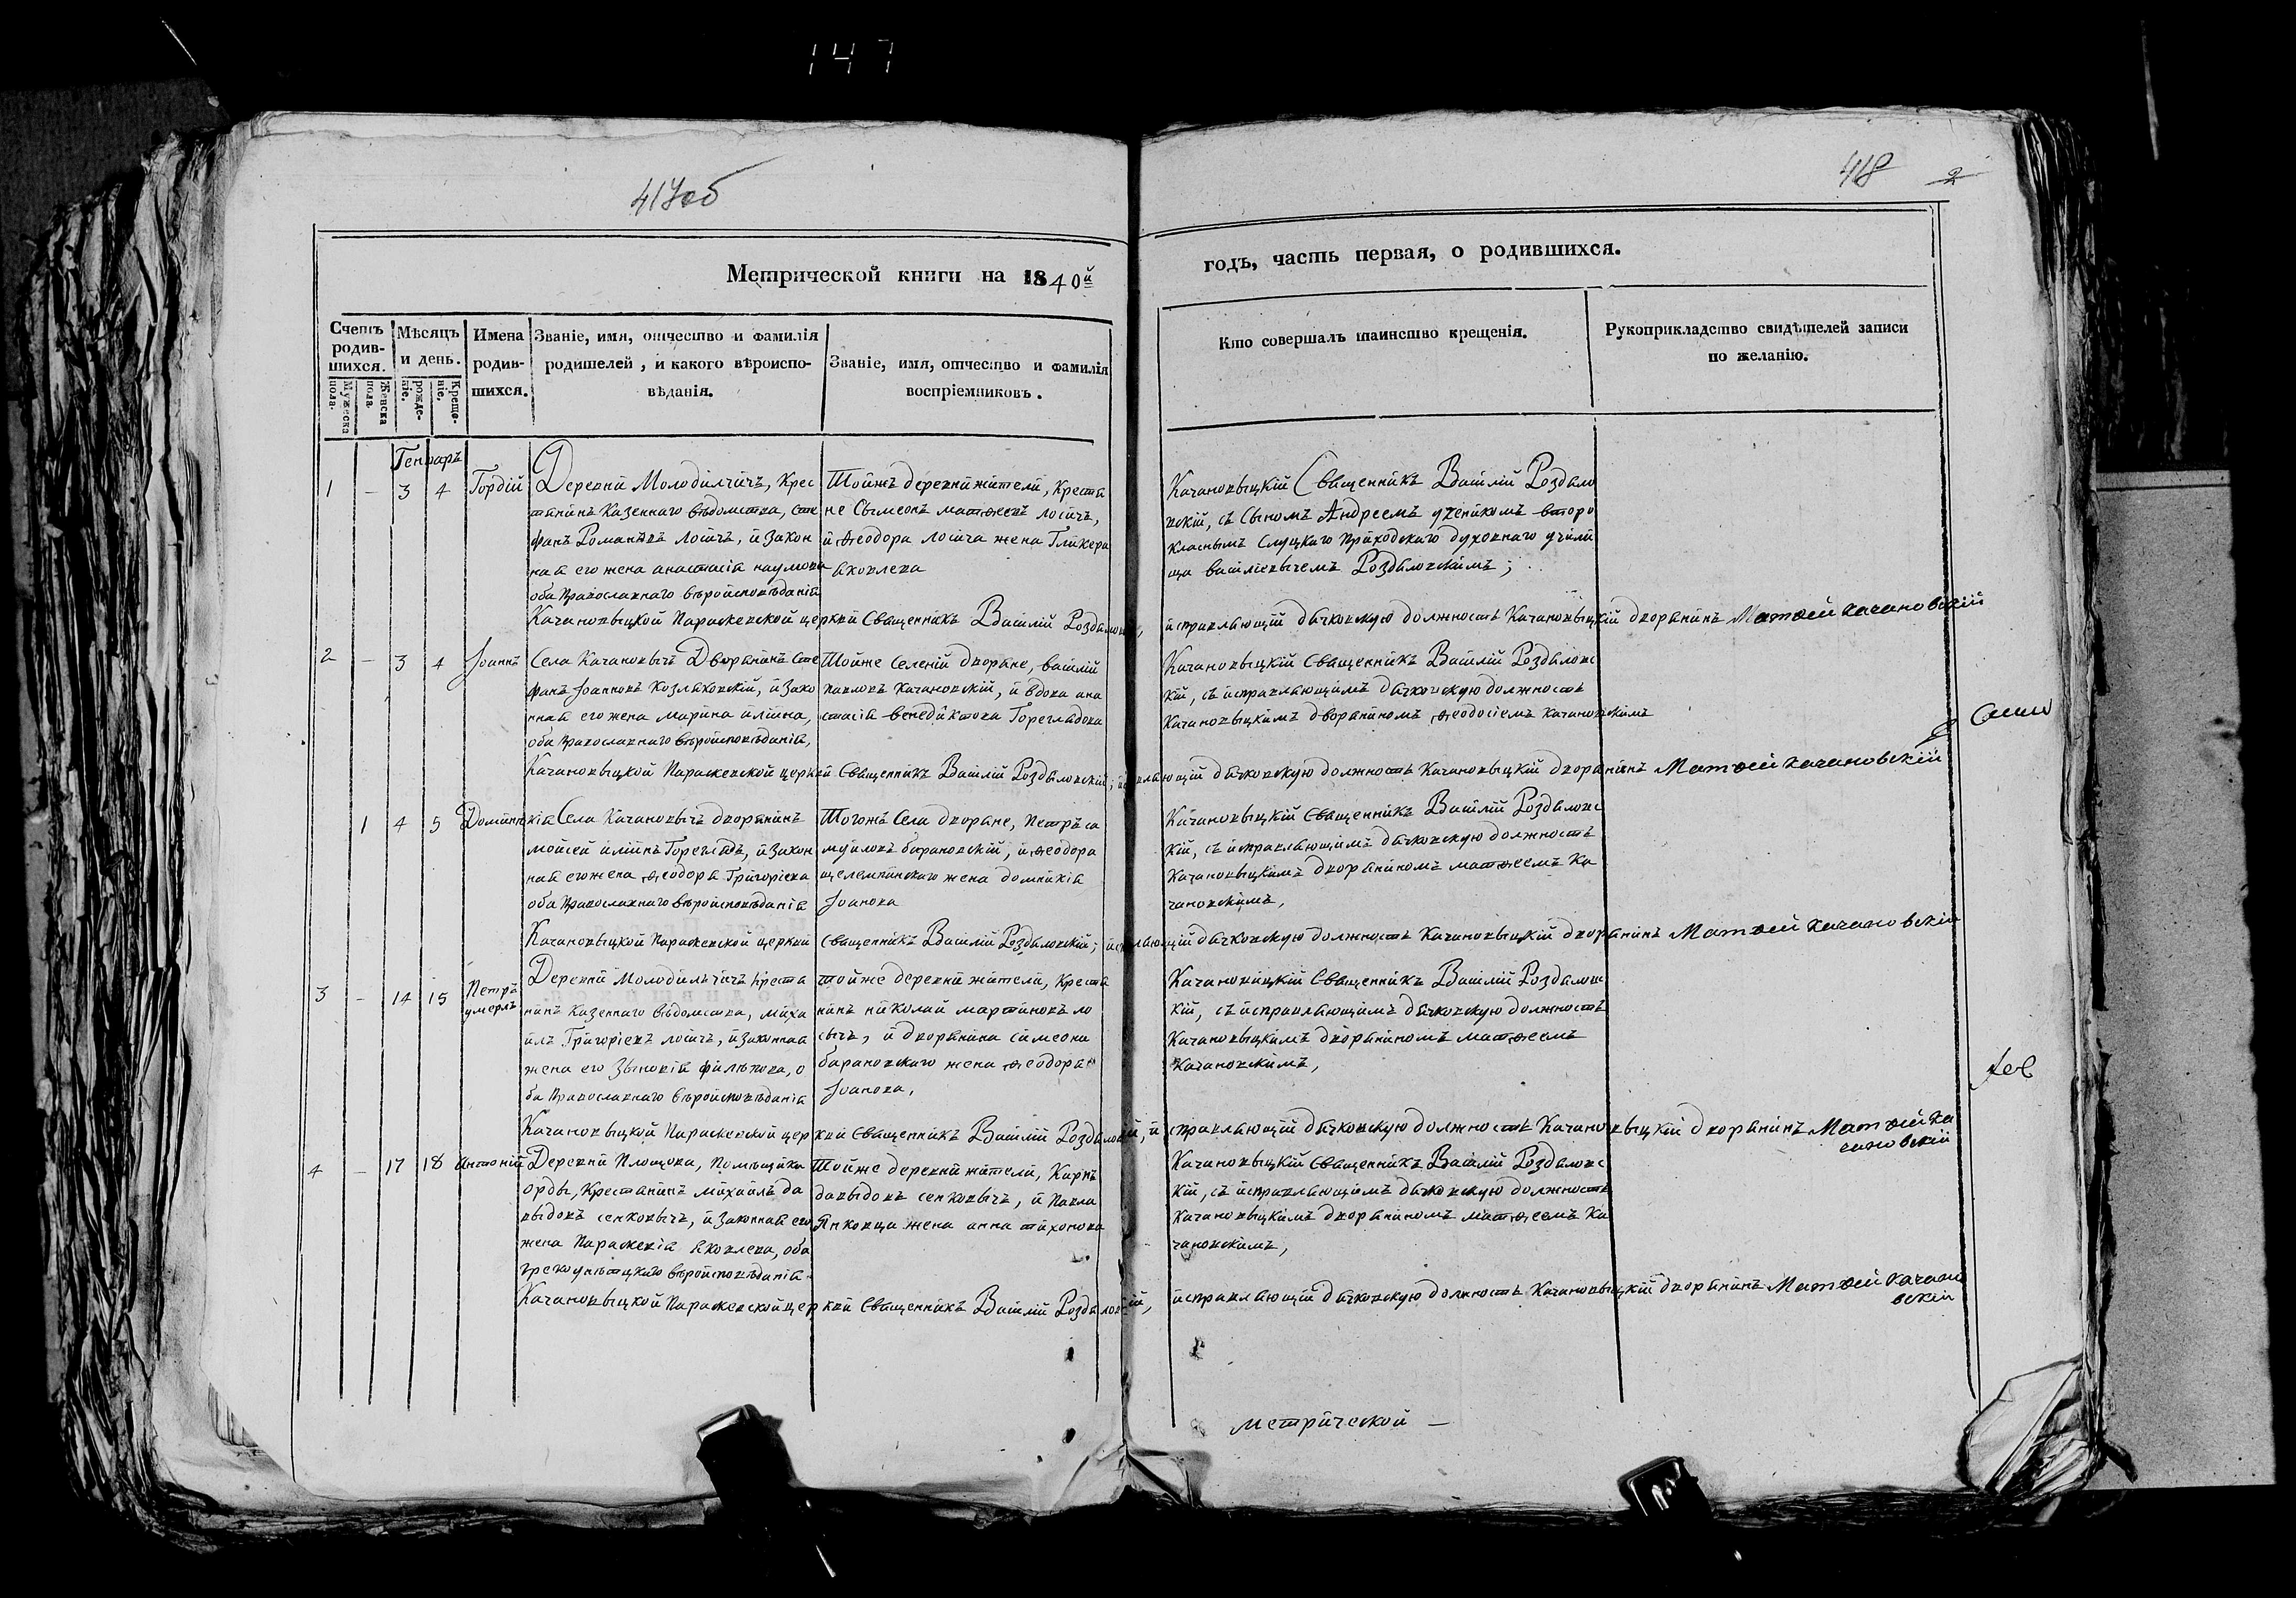 147
417об
418 2
Метрической книги на 1840й
годъ, часть первая, о родившихся.
Счетъ родив-шихся.
Мужеска пола.
Женска пола.
Мѣсяцъ и день.
рожде-ніе.
Креще-ніе.
Имена родив-шихся.
Званіе, имя, отчество и фамилія
родителей, и какого вѣроиспо-
вѣданія.
Званіе, имя, отчество и фамилія
воспріемниковъ.
Кто совершалъ таинство крещенія.
Рукоприкладство свидѣтелей записи
по желанію.
Генваръ
1 - 3 4 Гордій
Деревни Молодилчичъ, Крес
тянинъ Казеннаго вѣдомства, сте
фанъ Романовъ лосичъ, и закон
ная его жена анастасія наумова
оба Православнаго вѣроисповѣданія
Тойжъ деревни жители, Крестя
не Сымеонъ матѳеевъ лосичъ,
и ѳеодора лосича жена Гликера
яковлева
Качановыцкій Священникъ Василій Роздяло
вскій, съ Сыномъ Андреемъ ученикомъ второ
класнымъ Слуцкаго Приходскаго духовнаго учили
ща василіевычемъ Роздяловскимъ;
Качановыцкой Параскевской церкви Священникъ Василій Роздяловскій, исправляющій дячковскую должность Качановыцкій дворянинъ Матѳей качановскій
2 - 3 4 Іоаннъ
Села Качановычъ Дворянинъ сте
фанъ Іоанновъ Козляковскій, и зако
нная его жена марина иліина,
оба Православнаго вѣроисповѣданія,
Тойже Селеній дворяне, василій
павловъ Качановскій, и вдова ана
стасія венедиктова Горегладова
Качановыцкій Священникъ Василій Роздяловс
кій, съ исправляющимъ дячковскую должность
Качановыцкимъ дворяниномъ ѳеодосіемъ Качановскимъ
Качановыцкой Параскевской церкви Священникъ Василій Роздяловскій; исправляющій дячковскую должность Качановыцкій дворянинъ Матѳей качановскій
1 4 5 Домникія
Села Качановычъ дворянинъ
мойсей иліинъ Горегладъ, и закон
ная его жена ѳеодора Григоріева
оба Православнаго вѣроисповѣданія
Тогожъ Села дворяне, Петръ са
муиловъ барановскій, и ѳеодора
щелемпинскаго жена домникія
Іоанова
Качановыцкій Священникъ Василій Роздяловс
кій, съ исправляющимъ дячковскую должность
Качановыцкимъ дворяниномъ матѳеемъ Ка
чановскимъ,
Качановыцкой Параскевской церкви священникъ Василій Роздяловскій; исправляющій дячковскую должность Качановыцкій дворянинъ Матѳей качановскій
3 - 14 15 Петръ
умерлъ
Деревни Молодильчичъ Крестя
нинъ Казеннаго вѣдомства, миха
илъ Григоріевъ лосичъ, и законная
жена его Зѣновія филѣпова, о
ба Православнаго вѣроисповѣданія
тойже деревни жители, Крестя
нинъ николай мартиновъ ло
сычъ, и дворянина симеона
барановскаго жена ѳеодора
Іоанова,
Качановицкій Священникъ Василій Роздяловс
кій, съ исправляющимъ дячковскую должность
Качановыцкимъ дворяниномъ матѳеемъ
Качановскимъ,
Качановыцкой Параскевской церкви Священникъ Василій Роздяловскій, исправляющій дячковскую должность Качановыцкій дворянинъ Матѳей ка
чановскій
4 - 17 18 антоній
Деревни Площова, Помѣщика
орды, Крестянинъ михаилъ да
выдовъ сенковычъ, и законная его
жена Параскевія яковлева, оба
грекоуніятцкаго вѣроисповѣданія
Тойже деревни жители, Карпъ
давыдовъ сенковычъ, и Павла
Янковца жена анна тихонова
Качановыцкій Священникъ Василій Роздяловс
кій, съ исправляющимъ дячковскую должность
Качановыцкимъ дворяниномъ матѳеемъ Ка
чановскимъ,
Качановыцкой Параскевской церкви Священникъ Василій Роздяловскій, исправляющій дячковскую должность Качановыцкій дворянинъ Матѳей качано
вскій
метрической —